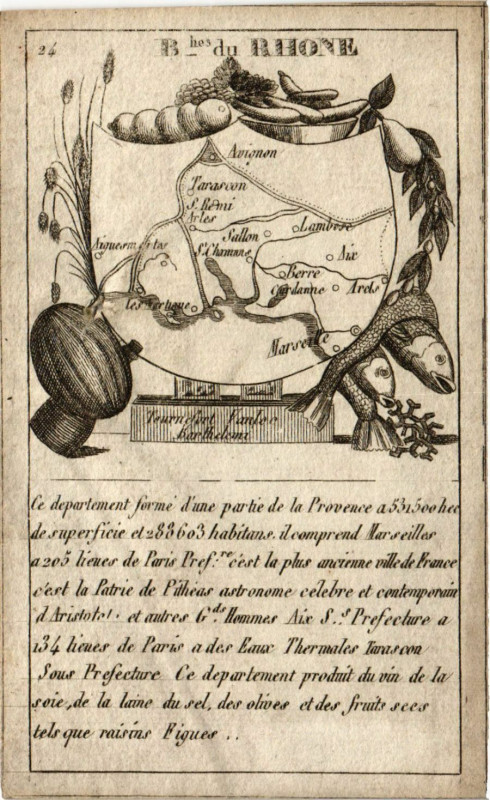 24
B.hes du RHONE
Avignon
Tarascon
S. Remi
Arles
Lambese
Sallon
S. Chamans
Aix
Aiguesmortes
Berre
Gardanne
Arels
Marseille
Tournefort Vanloo
Barthelemi
Ce departement formé d'une partie de la Provence a 531500 hec
de superficie et 283603 habitans. il comprend Marseilles
a 205 lieues de Paris Pref.re c'est la plus ancienne ville de France
c'est la Patrie de Pitheas astronome celebre et contemporain
d'Aristote. et autres G.ds Hommes Aix S.s Prefecture a
134 lieues de Paris a des Eaux Thermales Tarascon
Sous Prefecture Ce departement produit du vin de la
soie, de la laine du sel, des olives et des fruits secs
tels que raisins Figues ..